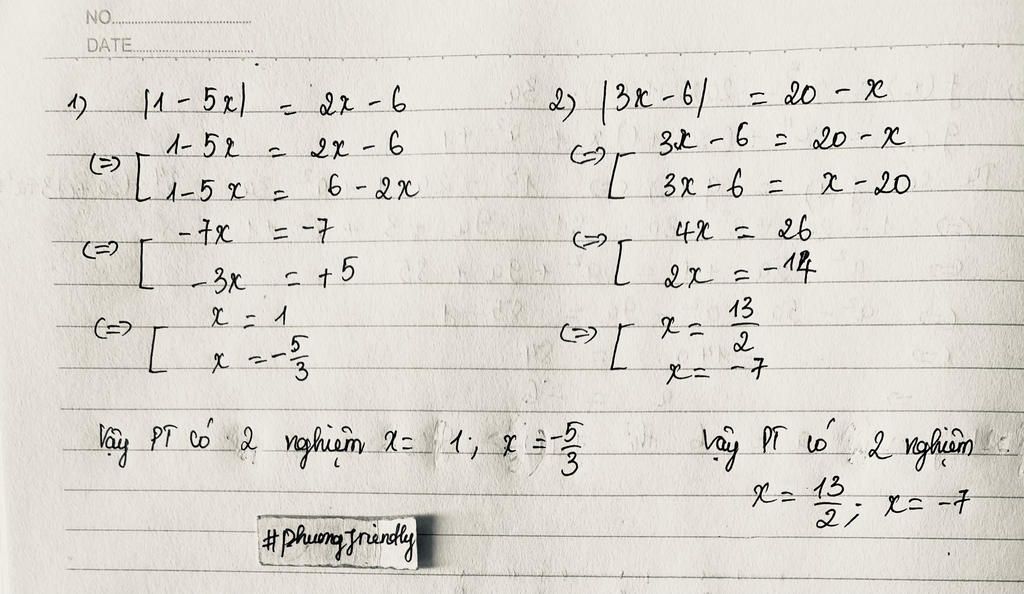 NO.
DATE
1) |1 - 5x| = 2x - 6
(=) [ 1 - 5x = 2x - 6
1 - 5x = 6 - 2x
(=) [ -7x = -7
-3x = +5
(=) [ x = 1
x = -5/3
Vậy PT có 2 nghiệm x = 1; x = -5/3
2) |3x - 6| = 20 - x
(=) [ 3x - 6 = 20 - x
3x - 6 = x - 20
(=) [ 4x = 26
2x = -14
(=) [ x = 13/2
x = -7
Vậy PT có 2 nghiệm
x = 13/2; x = -7
#phuongfriendly